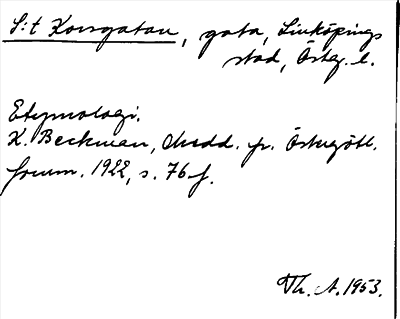 S:t Korsgatan, gata, Linköpings
stad, Österg. l.
Etymologi.
K. Beckman, Medd. fr. Östergötl.
fornm. 1922, s. 76 f.
Th. A. 1953.